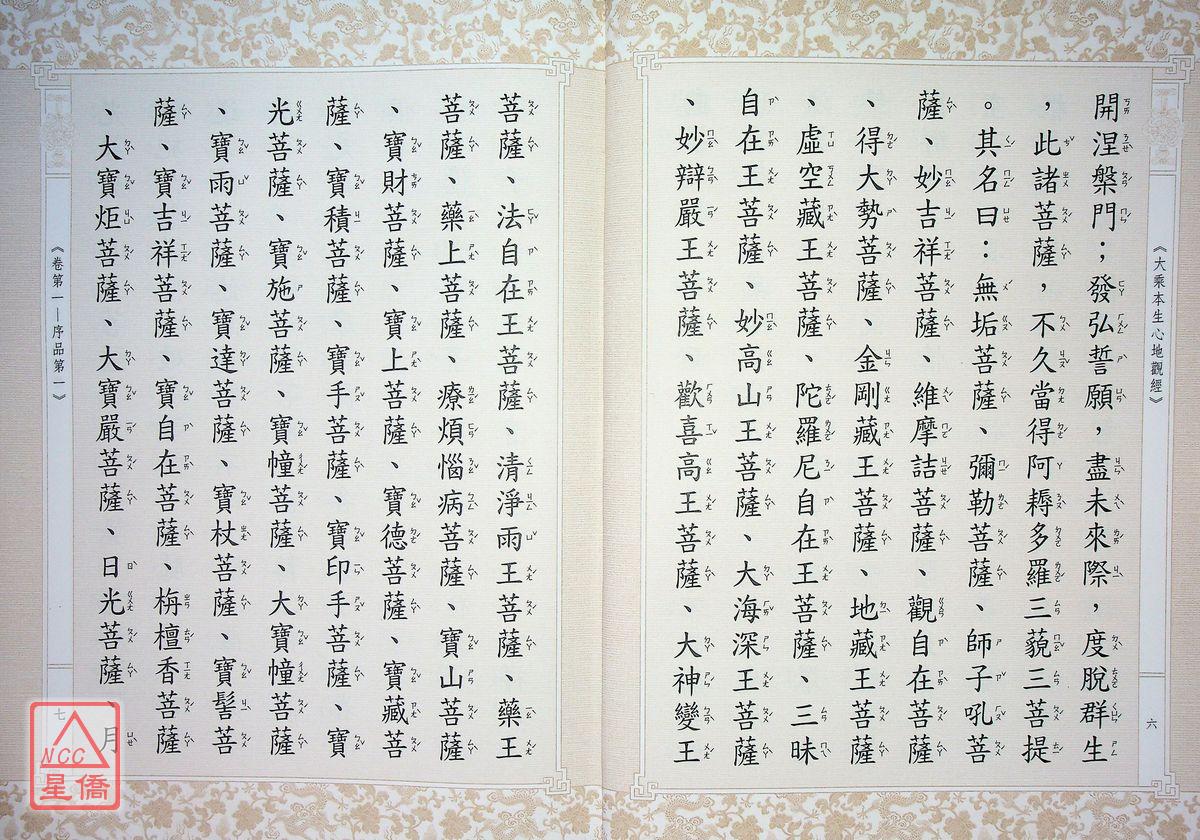 《大乘本生心地觀經》
六
開涅槃門；發弘誓願，盡未來際，度脫群生
，此諸菩薩，不久當得阿耨多羅三藐三菩提
。其名曰：無垢菩薩、彌勒菩薩、師子吼菩
薩、妙吉祥菩薩、維摩詰菩薩、觀自在菩薩
、得大勢菩薩、金剛藏王菩薩、地藏王菩薩
、虛空藏王菩薩、陀羅尼自在王菩薩、三昧
自在王菩薩、妙高山王菩薩、大海深王菩薩
、妙辯嚴王菩薩、歡喜高王菩薩、大神變王
菩薩、法自在王菩薩、清淨雨王菩薩、藥王
菩薩、藥上菩薩、療煩惱病菩薩、寶山菩薩
、寶財菩薩、寶上菩薩、寶德菩薩、寶藏菩
薩、寶積菩薩、寶手菩薩、寶印手菩薩、寶
光菩薩、寶施菩薩、寶幢菩薩、大寶幢菩薩
、寶雨菩薩、寶達菩薩、寶杖菩薩、寶髻菩
薩、寶吉祥菩薩、寶自在菩薩、栴檀香菩薩
、大寶炬菩薩、大寶嚴菩薩、日光菩薩、月
《卷第一—序品第一》
七
NCC
星僑